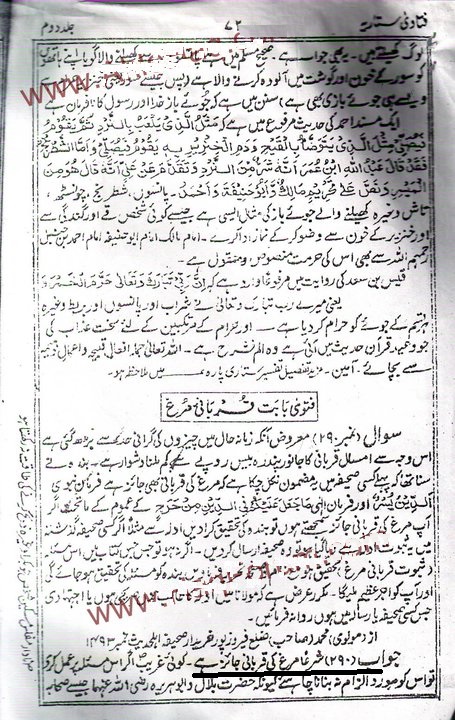 فتاویٰ ستاریہ ۷۲ جلد دوم
لوگ کھیلتے ہیں۔ یہ بھی جوا ہے۔ صحیح مسلم میں ہے کھیلنے والا گویا اپنے ہاتھوں
کو سور کے خون اور گوشت میں آلودہ کرنے والا ہے
ویسے ہی جوئے بازی بھی ہے) سنن میں ہے کہ جوئے باز خدا اور رسول کا نافرمان ہے
ایک مسند احمد کی حدیث مرفوع میں ہے کہ مَثَلُ الَّذِیْ یَلْعَبُ بِالنَّرْدِ ثُمَّ یَقُوْمُ
یُصَلِّیْ مِثْلُ الَّذِیْ یَتَوَضَّأُ بِالْقَیْحِ وَدَمِ الْخِنْزِیْرِ ثُمَّ یَقُوْمُ فَیُصَلِّیْ وَاَمَّا الشَّطْرَنْجُ
فَقَدْ قَالَ عَبْدُ اللهِ ابْنُ عُمَرَ اَنَّهٗ شَرٌّ مِّنَ النَّرْدِ وَنُقِلَ عَنْ عَلِیٍّ اَنَّهٗ قَالَ هُوَ مِنَ
الْمَیْسِرِ وَنَصَّ عَلٰی تَحْرِیْمِهٖ مَالِكٌ وَّاَبُوْ حَنِیْفَةَ وَاَحْمَدُ۔ پانسوں، شطرنج،
تاش وغیرہ کھیلنے والے جوئے باز کی مثال ایسی ہے جیسے کوئی شخص قے اور گندگی سے
اور خنزیر کے خون سے وضو کر کے نماز ادا کرے۔ امام مالک امام ابو حنیفہ امام احمد بن حنبل
رحمہم اللہ سے بھی اس کی حرمت منصوص و منقول ہے۔
قیس بن سعد کی روایت میں مرفوعاً وارد ہے کہ اِنَّ رَبِّیْ تَبَارَكَ وَتَعَالٰی حَرَّمَ الْخَمْرَ وَ
یعنی میرے رب تبارک و تعالیٰ نے شراب اور پانسوں اور بربط وغیرہ
ہر قسم کے جوئے کو حرام کر دیا ہے اور حرام کے مرتکبین کے لئے سخت عذاب کی
جو وعید قرآن حدیث میں آئی ہے وہ الم نشرح ہے۔ اللہ تعالیٰ جملہ افعال قبیحہ و اعمال ذمیمہ
سے بچائے۔ آمین۔ مزید تفصیل تفسیر ستاری پارہ میں ملاحظہ ہو۔
فتویٰ بابت قربانی مرغ
سوال (نمبر ۲۹۰) معروض آنکہ زمانہ حال میں چیزوں کی گرانی حد سے بڑھ گئی ہے
اس وجہ سے امسال قربانی کا جانور پندرہ بیس روپے سے کم ملنا دشوار ہے۔ بندہ نے
سنا تھا کہ پہلے کسی صحیفہ میں یہ مضمون نکل چکا ہے کہ مرغ کی قربانی بھی جائز ہے فرمان نبوی
اَلدِّیْنُ یُسْرٌ اور فرمان الٰہی مَا جَعَلَ عَلَیْكُمْ فِی الدِّیْنِ مِنْ حَرَجٍ کے عموم کے ماتحت اگر
آپ مرغ کی قربانی جائز سمجھتے ہوں تو بندہ کو تحقیق کرا دیں اور سے مثلاً اگر کسی صحیفہ گذشتہ
میں یہ ثبوت صحیفہ ارسال کر دیں۔ اگر نہ ہو تو جس جس کتاب میں اس مسئلہ
ثبوت قربانی مرغ تحقیق ہو بندہ کو مسئلہ کی تحقیق ہو جائے گی
اور آپ کو اجر عظیم ملیگا۔ مکرر عرض ہے کہ مولانا ہوں یا اجتہادی
جس کسی صحیفہ یا رسالہ میں ہوں روانہ فرمائیں۔
از (مولوی) محمد (صاحب) ضلع فیروزپور خریدار صحیفہ اہلحدیث نمبر ۱۴۹۳
جواب (۲۹۰) شرعاً مرغ کی قربانی جائز ہے۔ کوئی غریب اگر اس مسئلہ پر عمل کرے
تو اس کو مورد الزام نہ بنانا چاہئے کیونکہ حضرت بلال و ابو ہریرہ رضی اللہ عنہما جیسے صحابہ
WWW
www